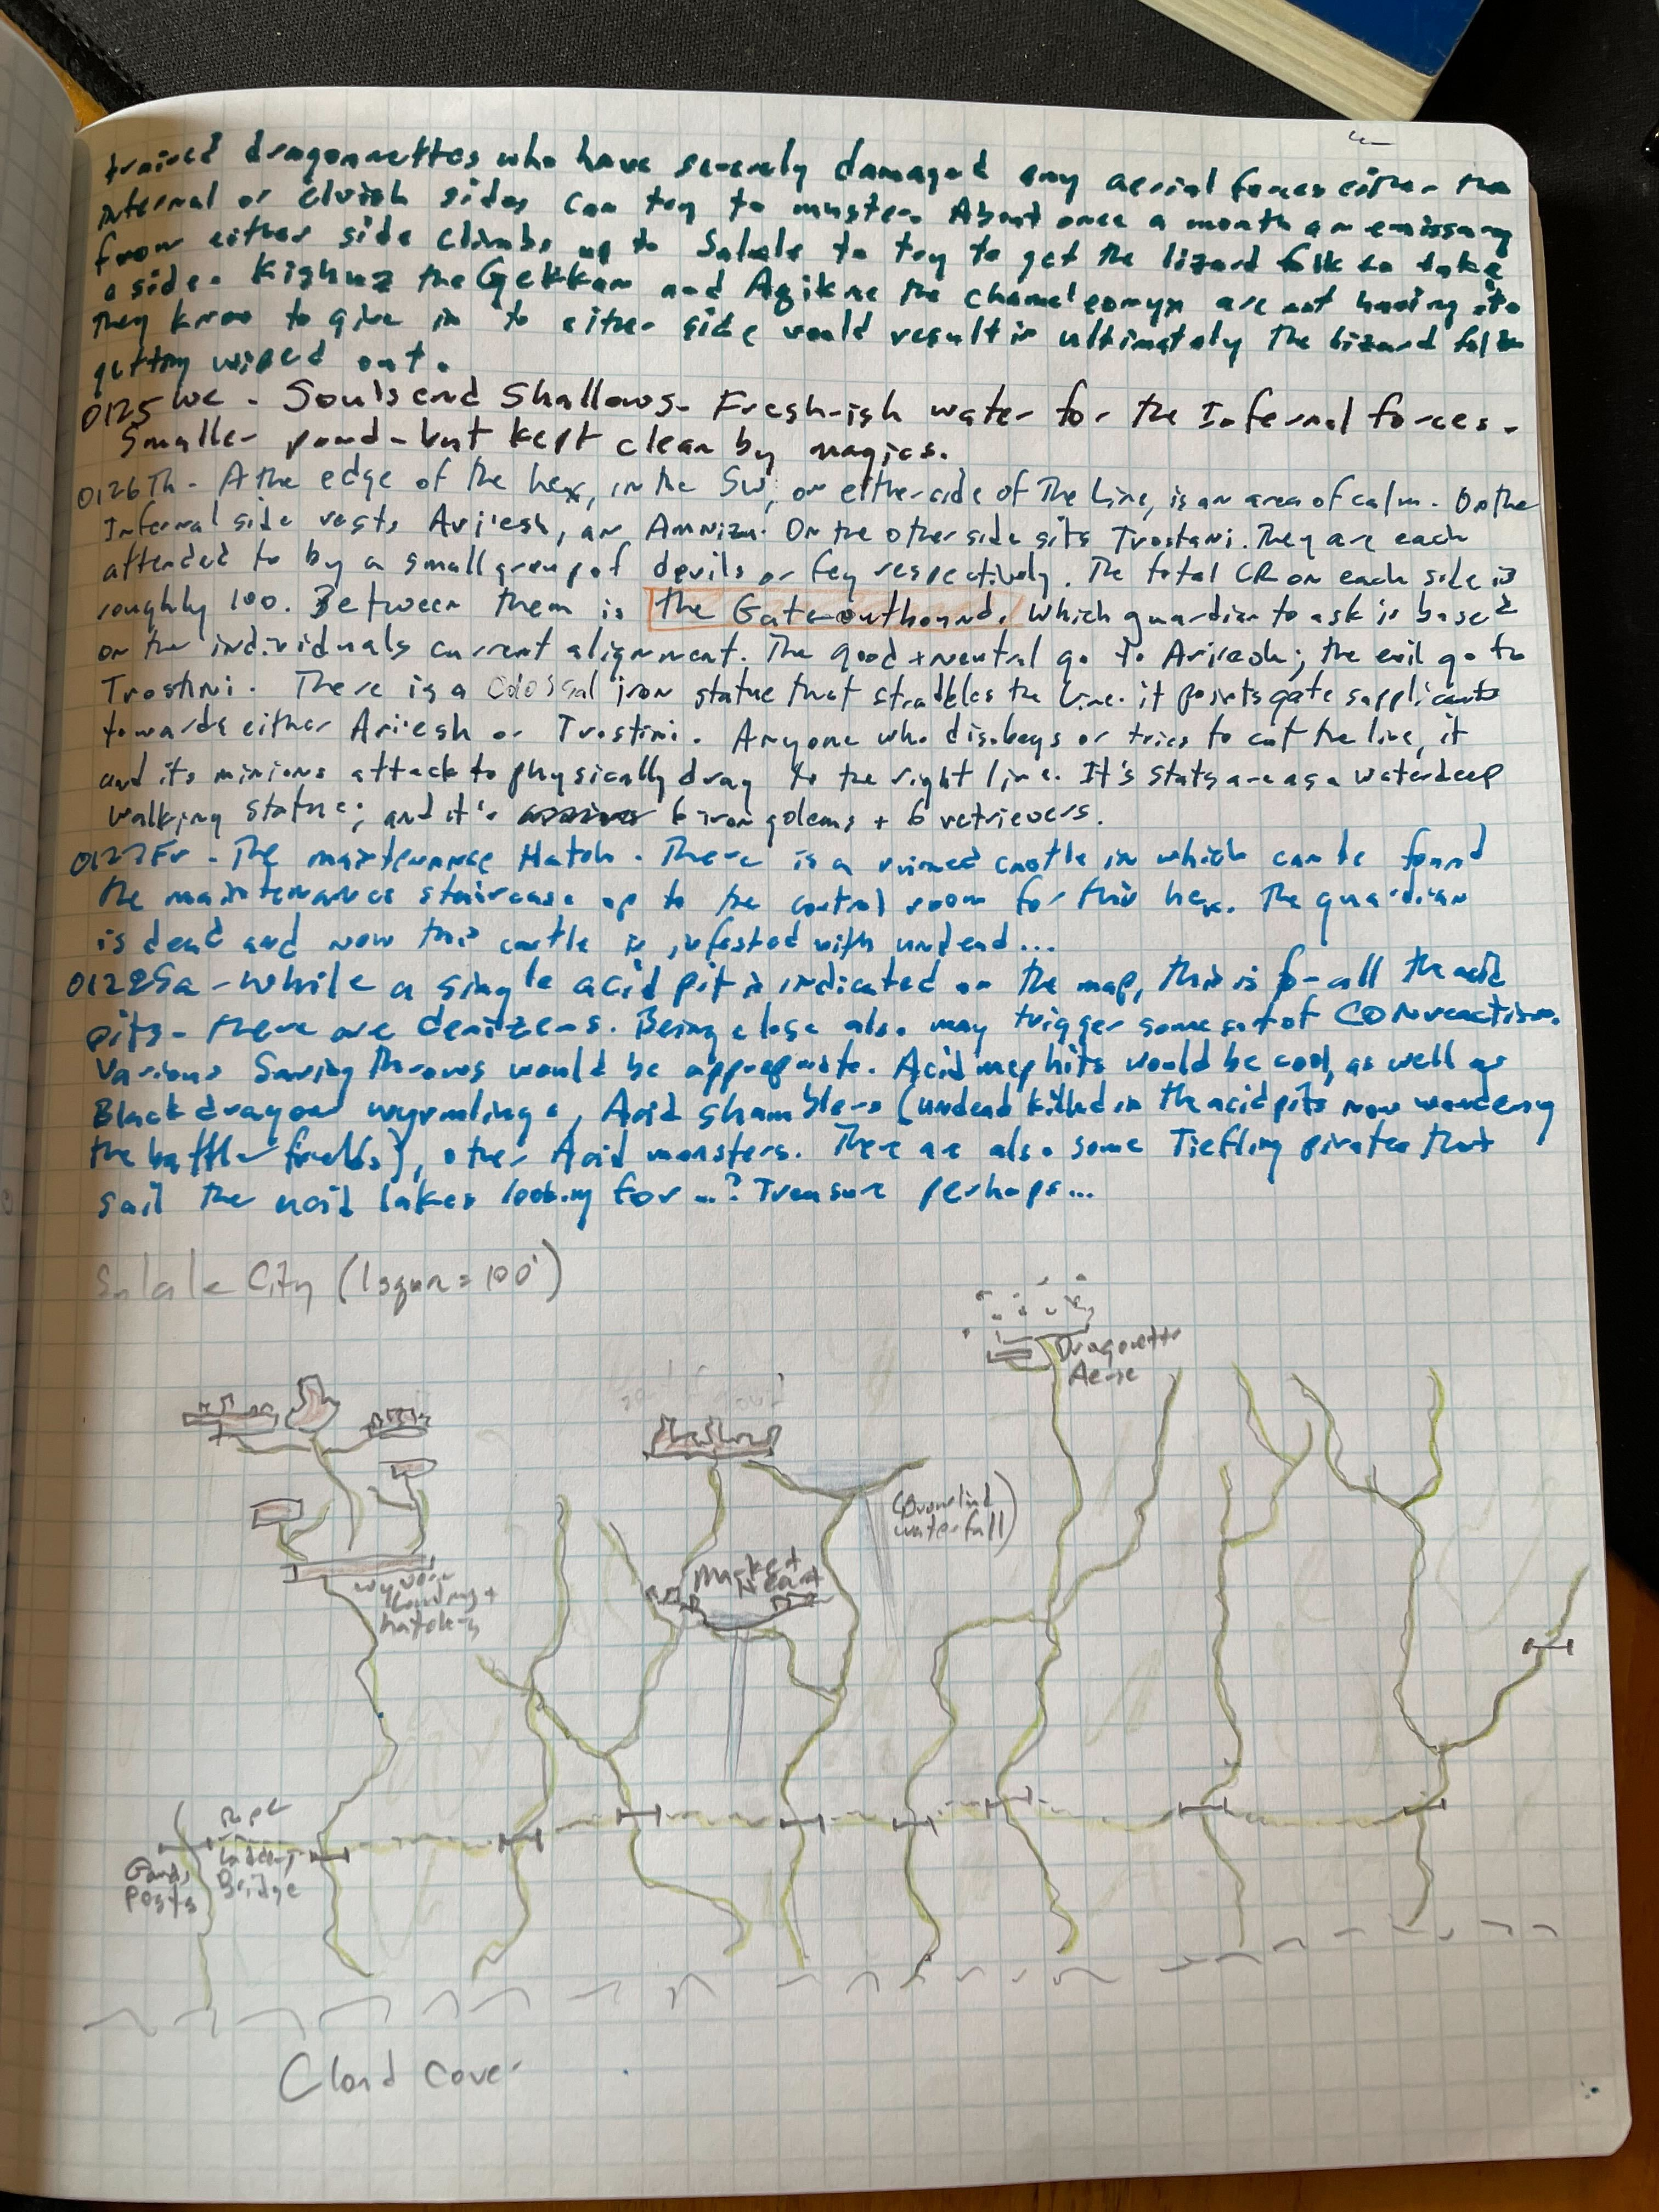 trained dragonnettes who have severely damaged any aerial forces either the
Infernal or elvish sides can try to muster. About once a month an emissary
from either side climbs up to Salale to try to get the lizard folk to take
a side. Kighuz the Gekkan and Azikne the chameleonyx are not having it.
They know to give in to either side would result in ultimately the lizard folk
getting wiped out.
0125 We - Soulsend Shallows. Fresh-ish water for the Infernal forces.
Smaller pond - but kept clean by magics.
0126 Th - A the edge of the hex, in the SW, on either side of The Line, is an area of calm. On the
Infernal side rests Ariesh, an Amnizu. On the other side sits Trostani. They are each
attended to by a small group of devils or fey respectively. The total CR on each side is
roughly 100. Between them is the Gate outbound. Which guardian to ask is based
on the individuals current alignment. The good + neutral go to Ariesh; the evil go to
Trostini. There is a Colossal iron statue that straddles the Line. it points gate supplicants
towards either Ariesh or Trostini. Anyone who disobeys or tries to cut the line, it
and its minions attack to physically drag to the right line. It's stats are as a waterdeep
walking statue; and it's 6 iron golems + 6 retrievers.
0127 Fr - The maintenance Hatch. There is a ruined castle in which can be found
the maintenance staircase up to the control room for this hex. The guardian
is dead and now this castle is infested with undead...
0128 Sa - While a single acid pit is indicated on the map, this is for all the acid
pits - there are denizens. Being close also may trigger some sort of CON reaction.
Various Saving throws would be appropriate. Acid mephits would be cool, as well as
Black dragon wyrmlings, Acid shamblers (undead killed in the acid pits now wandering
the battle fields), other Acid monsters. There are also some Tiefling pirates that
sail the acid lakes looking for...? Treasure perhaps...
Salale City (1 square = 100')
Dragonette
Aerie
(Downwind
waterfall)
Market
Wyvern
Landing +
hatchery
Rope
Ladder,
Bridge
Guard
Posts
Cloud cover